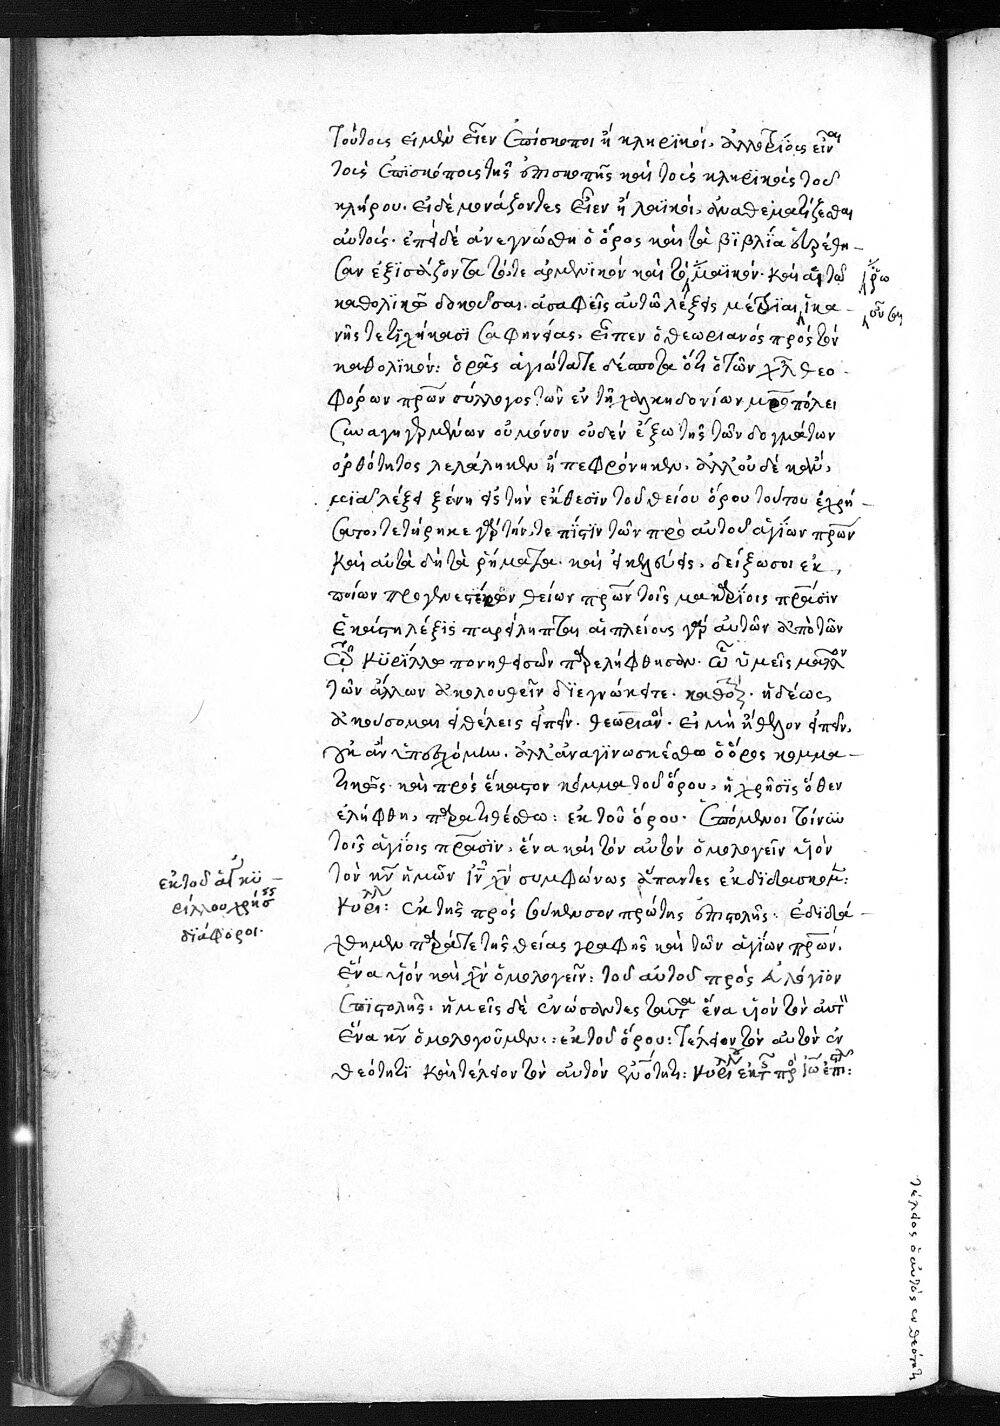 τούτοις εἰ μὲν εἶεν ἐπίσκοποι ἢ κληρικοί, ἀλλοτρίους εἶναι
τοὺς ἐπισκόπους τῆς ἐπισκοπῆς καὶ τοὺς κληρικοὺς τοῦ
κλήρου. εἰ δὲ μονάζοντες εἶεν ἢ λαϊκοί, ἀναθεματίζεσθαι
αὐτούς. ἐπεὶ δὲ ἀνεγνώσθη ὁ ὅρος καὶ τὰ βιβλία εὑρέθη-
σαν ἐξισάζοντα τό, τε ἀρμενικὸν καὶ τὸ ῥωμαϊκόν. καὶ αἱ τῷ
καθολικῷ δοκοῦσαι ἀσαφεῖς αὐτῷ λέξεις μέτριαι οὖσαι, ἱκα-
νῆς τετυχήκασι σαφηνείας, εἶπεν ὁ θεωριανὸς πρὸς τὸν
καθολικόν: ὁρᾷς ἁγιώτατε δέσποτα ὅτι ὁ τῶν χλ θεο-
φόρων πρων σύλλογος τῶν ἐν τῇ χαλκηδονίων μροπόλει
συναγηγερμένων οὐ μόνον οὐδὲν ἔξω τῆς τῶν δογμάτων
ὀρθότητος λελάληκεν ἢ πεφρόνηκεν, ἀλλ' οὐδὲ
μιᾷ λέξει ξένῃ εἰς τὴν ἔκθεσιν τοῦ θείου ὅρου τούτου ἐχρή-
σατο, τετήρηκε γὰρ τήν, τε πίστιν τῶν πρὸ αὐτοῦ ἁγίων πρων
καὶ αὐτὰ δὴ τὰ ῥήματα. καὶ εἰ κελεύεις, δείξω σοι ἐκ
ποίων προγενεστέρων θείων πρων τοῖς μακαρίοις πρασιν
ἑκάστη λέξις παρείληπται αἱ πλείους γὰρ αὐτῶν ἀπὸ τῶν
τῷ κυρίλλῳ πονηθεισῶν παρελήφθησαν. ᾧ ὑμεῖς μᾶλλον
τῶν ἄλλων ἀκολουθεῖν διεγνώκειτε. καθολ. ἡδέως
ἀκούσομαι εἰ θέλεις εἰπεῖν. θεωριαν. εἰ μὴ ἤθελον εἰπεῖν,
οὐκ ἂν ὑπεσχόμην. ἀλλ' ἀναγινωσκέσθω ὁ ὅρος κομμα-
τικῶς. καὶ πρὸς ἕκαστον κόμμα τοῦ ὅρου, ἡ χρῆσις ὅθεν
ἐλήφθη, παρατιθέσθω: ἐκ τοῦ ὅρου. ἑπόμενοι τοίνυν
τοῖς ἁγίοις πρασιν, ἕνα καὶ τὸν αὐτὸν ὁμολογεῖν υἱὸν
τὸν κν ἡμῶν ιν χν συμφώνως ἅπαντες ἐκδιδάσκομεν:
κυρίλλ: ἐκ τῆς πρὸς σούκενσον πρώτης ἐπιστολῆς. ἐδιδά-
χθημεν παρά τε τῆς θείας γραφῆς καὶ τῶν ἁγίων πρων,
ἕνα υἱὸν καὶ χν ὁμολογεῖν: τοῦ αὐτοῦ πρὸς εὐλόγιον
ἐπιστολῆς. ἡμεῖς δὲ ἑνώσαντες ταῦτα ἕνα υἱὸν τὸν αὐτὸν
ἕνα κν ὁμολογοῦμεν:: ἐκ τοῦ ὅρου: τέλειον τὸν αὐτὸν ἐν
θεότητι καὶ τέλειον τὸν αὐτὸν ἐν ἀνότητι: κυρίλλ ἐκ τῆς πρὸς ἰω ἐπι:
ῥω
οὖσαι
ἐκ τοῦ ἁγ κυ-
ρίλλου χρήσ
διάφοροι.
τέλειος ὁ αὐτὸς ἐν θεότητι